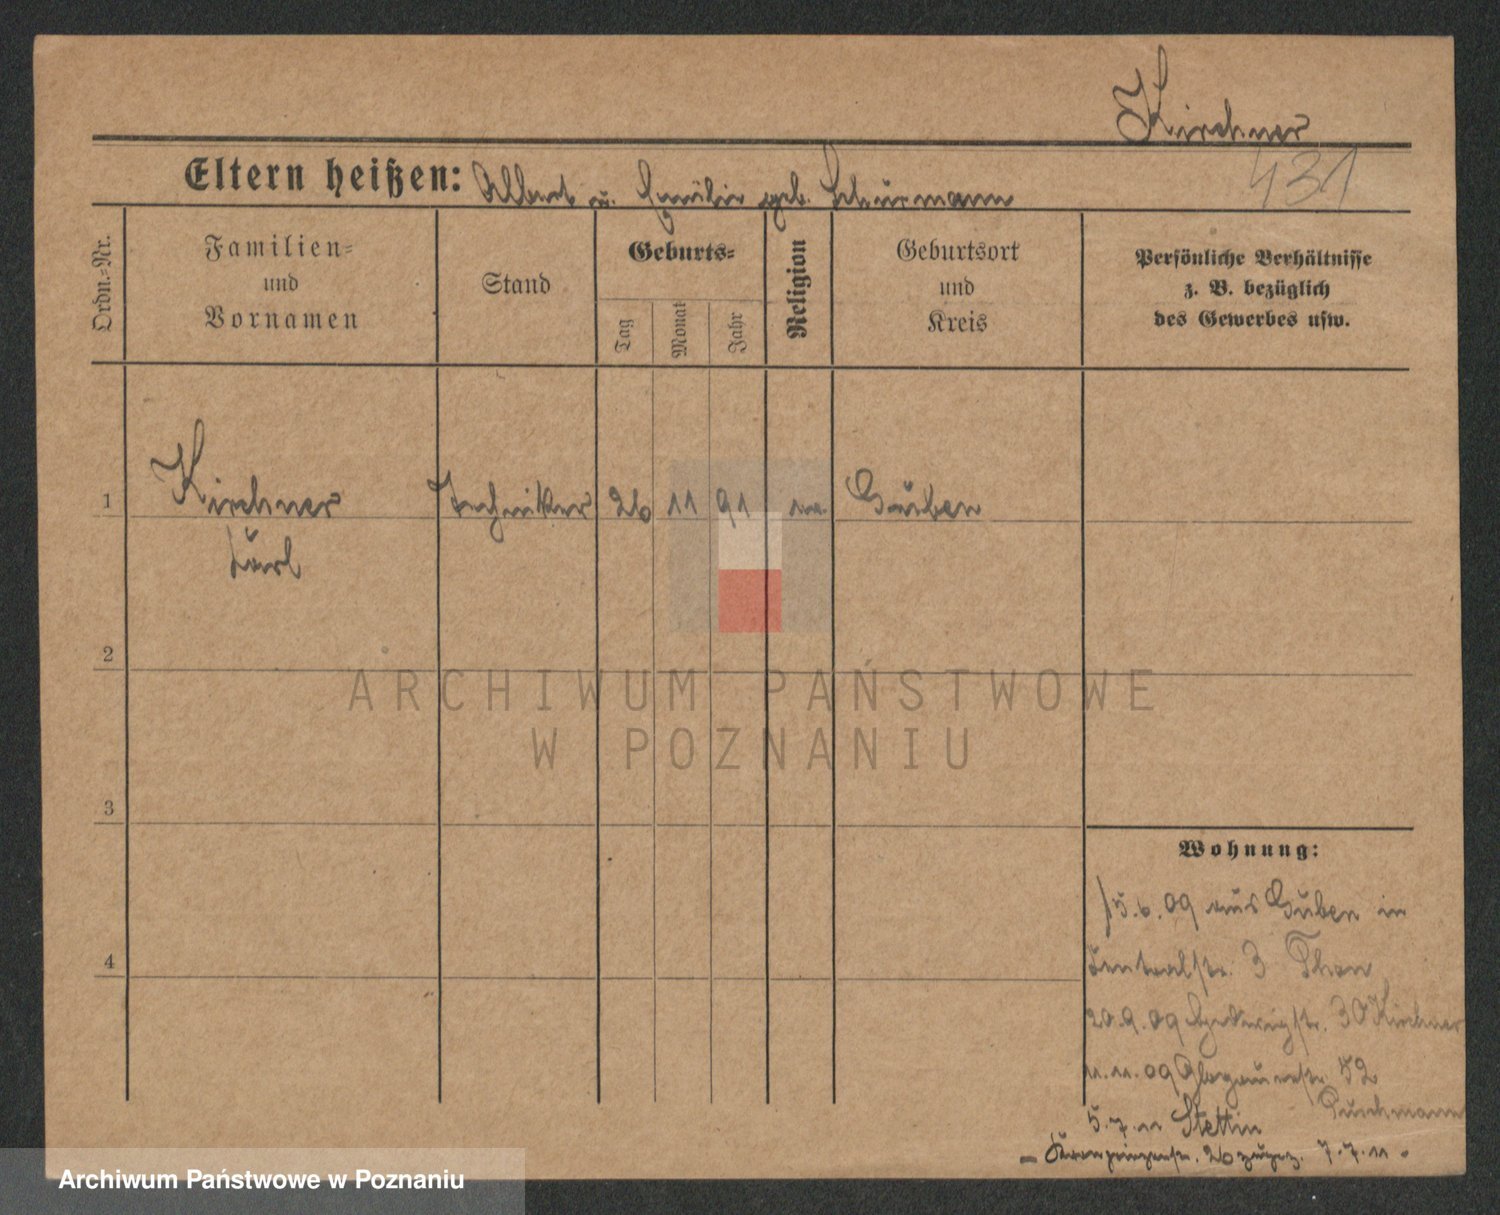 Kirchner
431
Eltern heißen: Albert u. Emilie geb. Schürmann
Ordn.-Nr.
Familien-
und
Vornamen
Stand
Geburts-
Tag
Monat
Jahr
Religion
Geburtsort
und
Kreis
Persönliche Verhältnisse
z. B. bezüglich
des Gewerbes usw.
1
Kirchner Techniker 26 11 91 Guben
Karl
2
ARCHIWUM PAŃSTWOWE
W POZNANIU
3
4
Wohnung:
5.6.09 aus Guben in
Centralstr. 3
20.9.09 Hedwigstr. 30 Kirchner
11.11.09 Glogauerstr. 52
Puschmann
5.7.11 Stettin
- Kronprinzenstr. 26 zugez. 7.7.11 -
Archiwum Państwowe w Poznaniu